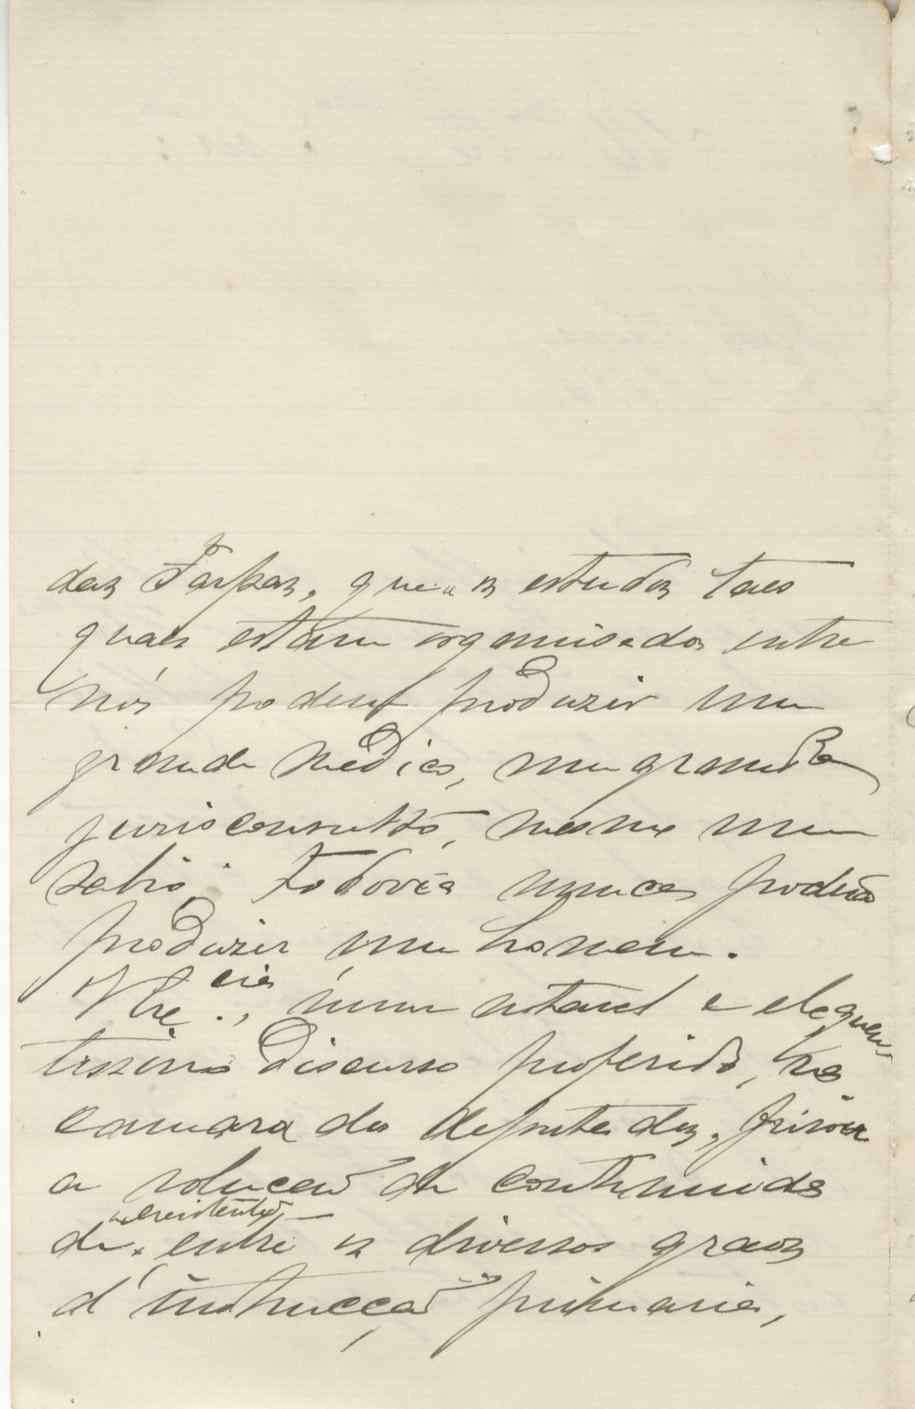 das Farpas, que os estudos taes
quaes estão organisados entre
nós podem produzir um
grande médico, um grande
jurisconsulto, mesmo um
sabio. Todavia nunca poderão
produzir um homem.
V. Ex.cia, n'um notavel e eloquen-
tissimo discurso proferido, na
camara dos deputados, frisou
a solução de continuida
de existente entre os diversos graos
d'instrucção primaria,